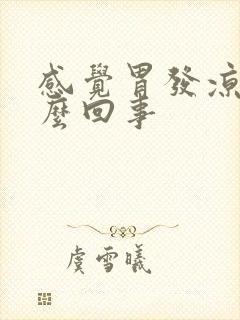 感覺胃發涼
麼回事
虞雪曦